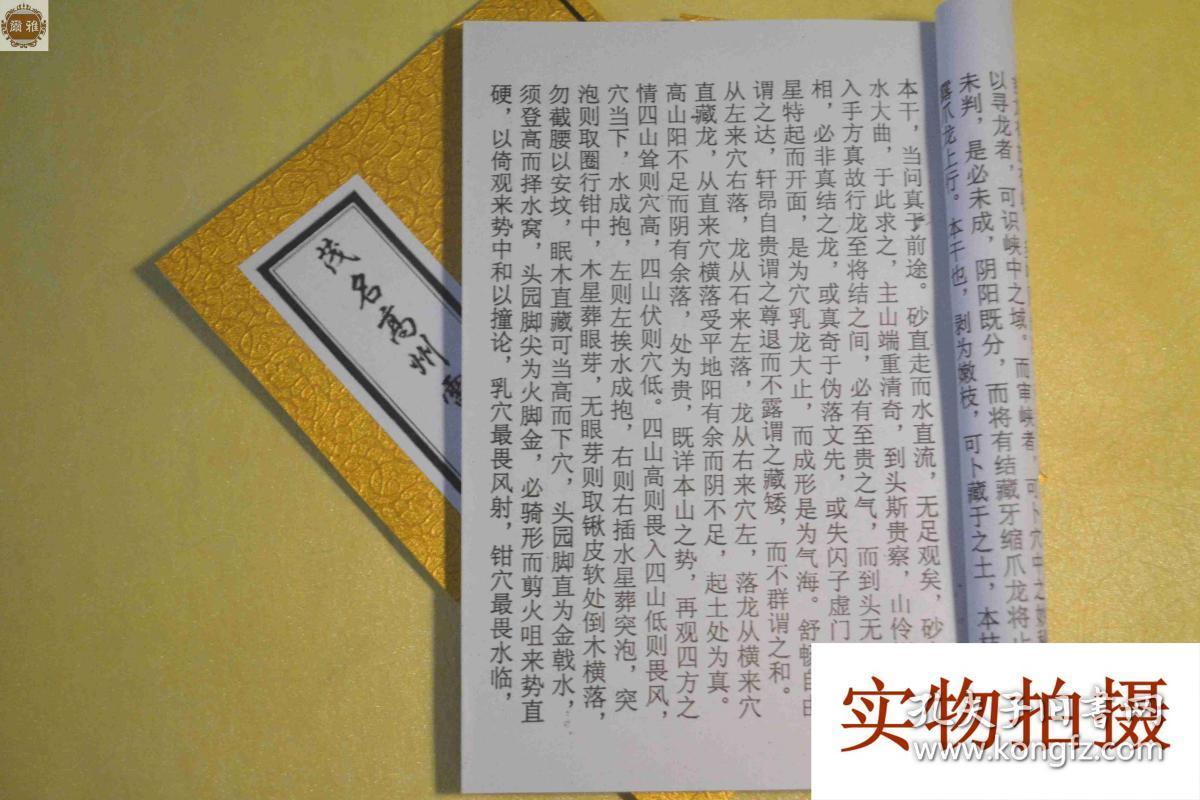 爾雅
茂名高州
以寻龙者，可识峡中之域。而审峡者，可卜穴中之
未判，是必未成，阴阳既分，而将有结藏牙缩爪龙将
露爪龙上行。本干也，剥为嫩枝，可卜藏于之土，本枝
本干，当问真于前途。砂直走而水直流，无足观矣，砂
水大曲，于此求之，主山端重清奇，到头斯贵察，山伶
入手方真故行龙至将结之间，必有至贵之气，而到头无
相，必非真结之龙，或真奇于伪落文先，或失闪子虚门
星特起而开面，是为穴乳龙大止，而成形是为气海。舒畅自由
谓之达，轩昂自贵谓之尊退而不露谓之藏矮，而不群谓之和。
从左来穴右落，龙从石来左落，龙从右来穴左，落龙从横来穴
直藏龙，从直来穴横落受平地阳有余而阴不足，起土处为真。
高山阳不足而阴有余落，处为贵，既详本山之势，再观四方之
情四山耸则穴高，四山伏则穴低。四山高则畏入四山低则畏风，
穴当下，水成抱，左则左挨水成抱，右则右插水星葬突泡，突
泡则取圈行钳中，木星葬眼芽，无眼芽则取锹皮软处倒木横落，
勿截腰以安坟，眠木直藏可当高而下穴，头园脚直为金戟水，
须登高而择水窝，头园脚尖为火脚金，必骑形而剪火咀来势直
硬，以倚观来势中和以撞论，乳穴最畏风射，钳穴最畏水临，
实物拍摄
孔夫子旧书网
www.kongfz.com